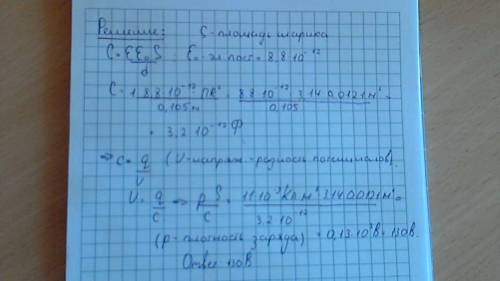 Решение: S - площадь шарика
C = εε₀S / d ε₀ - эл. пост = 8,8·10⁻¹²
C = 1·8,8·10⁻¹²·πR² / 0,105м = 8,8·10⁻¹²·3,14·0,0121м² / 0,105 =
= 3,2·10⁻¹² Ф
=> C = q / U (U - напряж - разность потенциалов).
U = q / C => ρS / C = 11·10⁻⁹ Кл м²·3,14·0,0121м² / 3,2·10⁻¹² =
(ρ - плотность заряда) = 0,13·10³В = 130В.
Ответ 130В